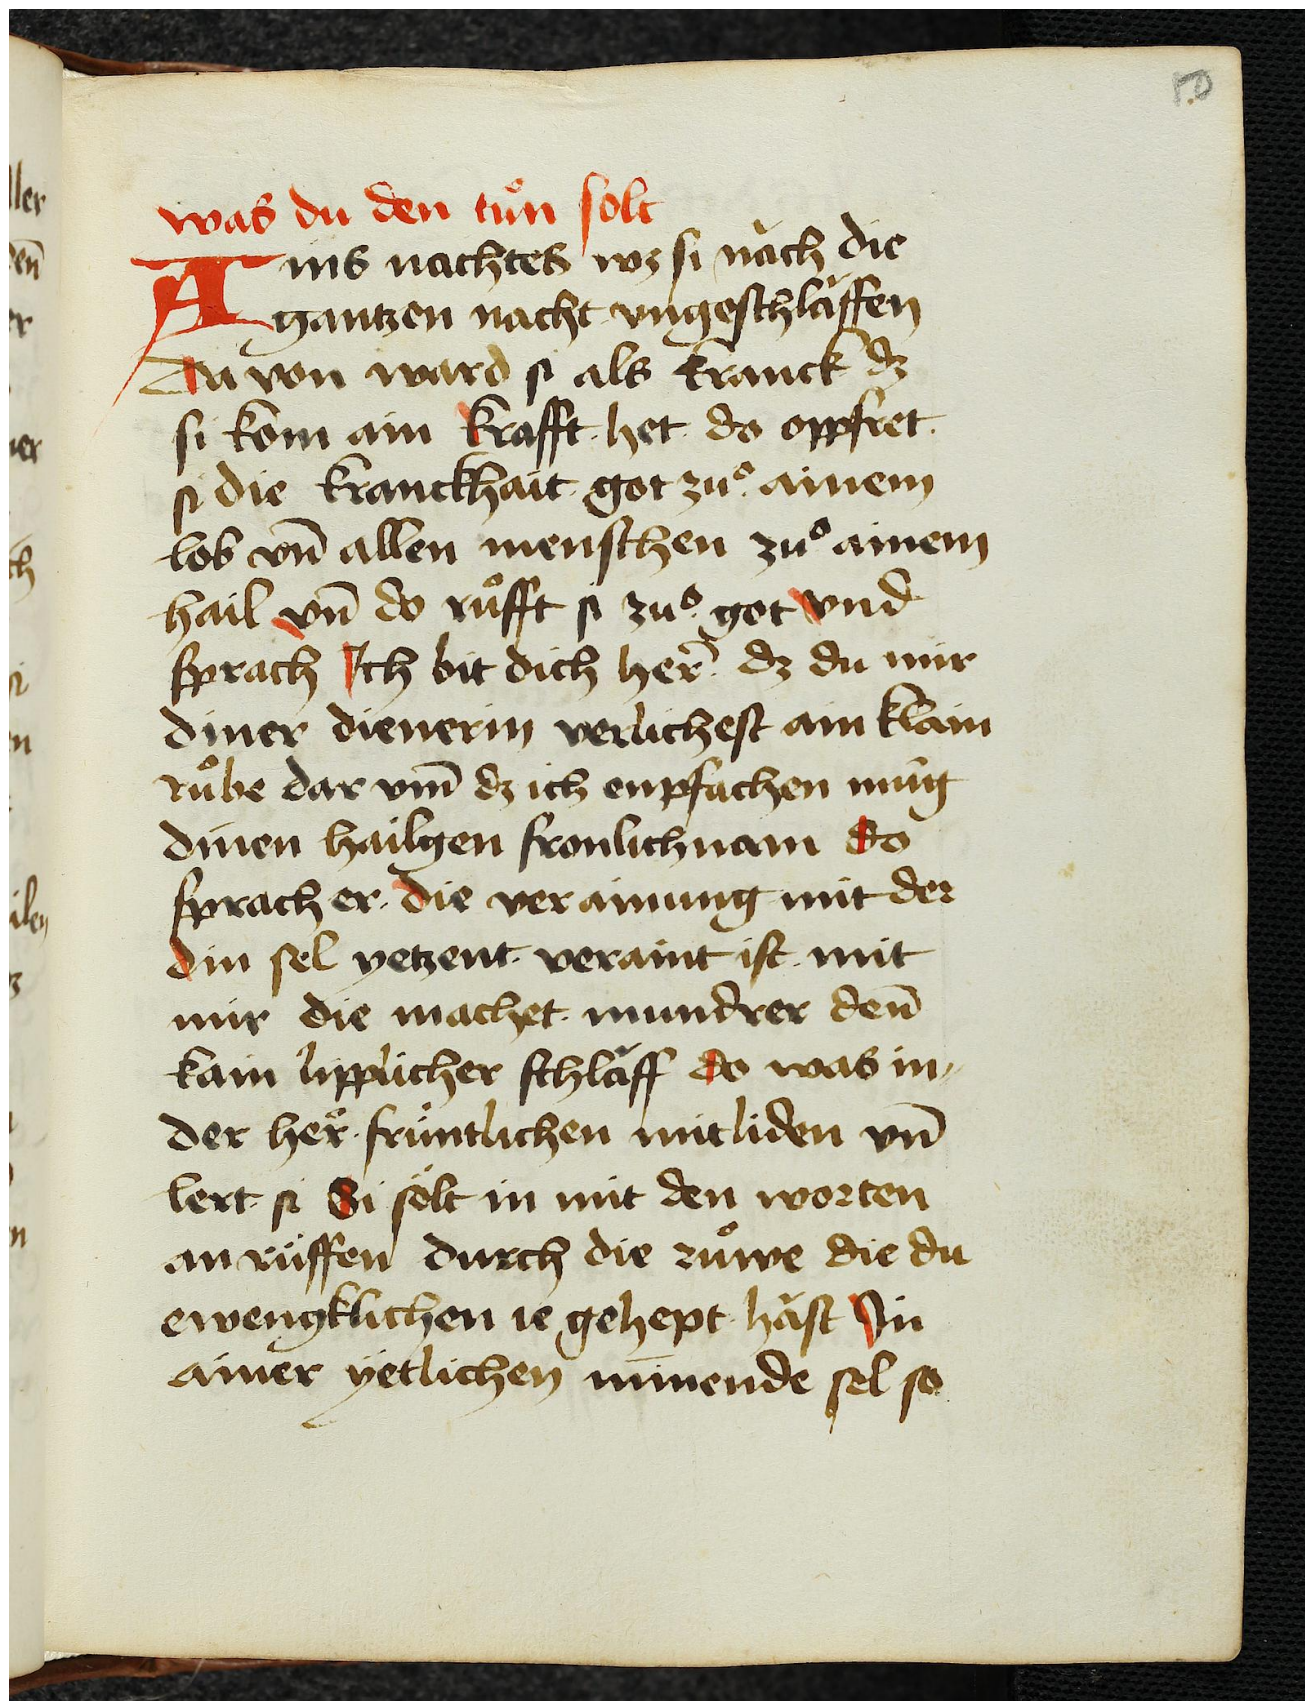 50
was du den tuͦn solt
Ains nachtes wz si năch die
gantzen nacht vngeschlăffen
Da von ward si als kranck dz
si kom ain krafft het do oppfret
si die kranckhait got zuͦ ainem
lob vn̄ allen menschen zuͦ ainem
hail vn̄ do ruͦfft si zuͦ got vnd
sprach Ich bit dich her̄ dz du mir
diner dienerin verlichest ain klain
ruͦbe dar vm̄ dz ich enpfachen mug
dinen hailgen fronlichnam do
sprach er die verainung mit der
din sel yetzent veraint ist mit
mir die machet mundrer den̄
kain lipplicher schlăff do was in
der her̄ früntlichen mitliden vn̄
lert si Si sölt in mit den worten
an rüffen durch die ruͦwe die du
ewengklichen ie gehept hăst In
ainer yetlichen min̄ende sel so